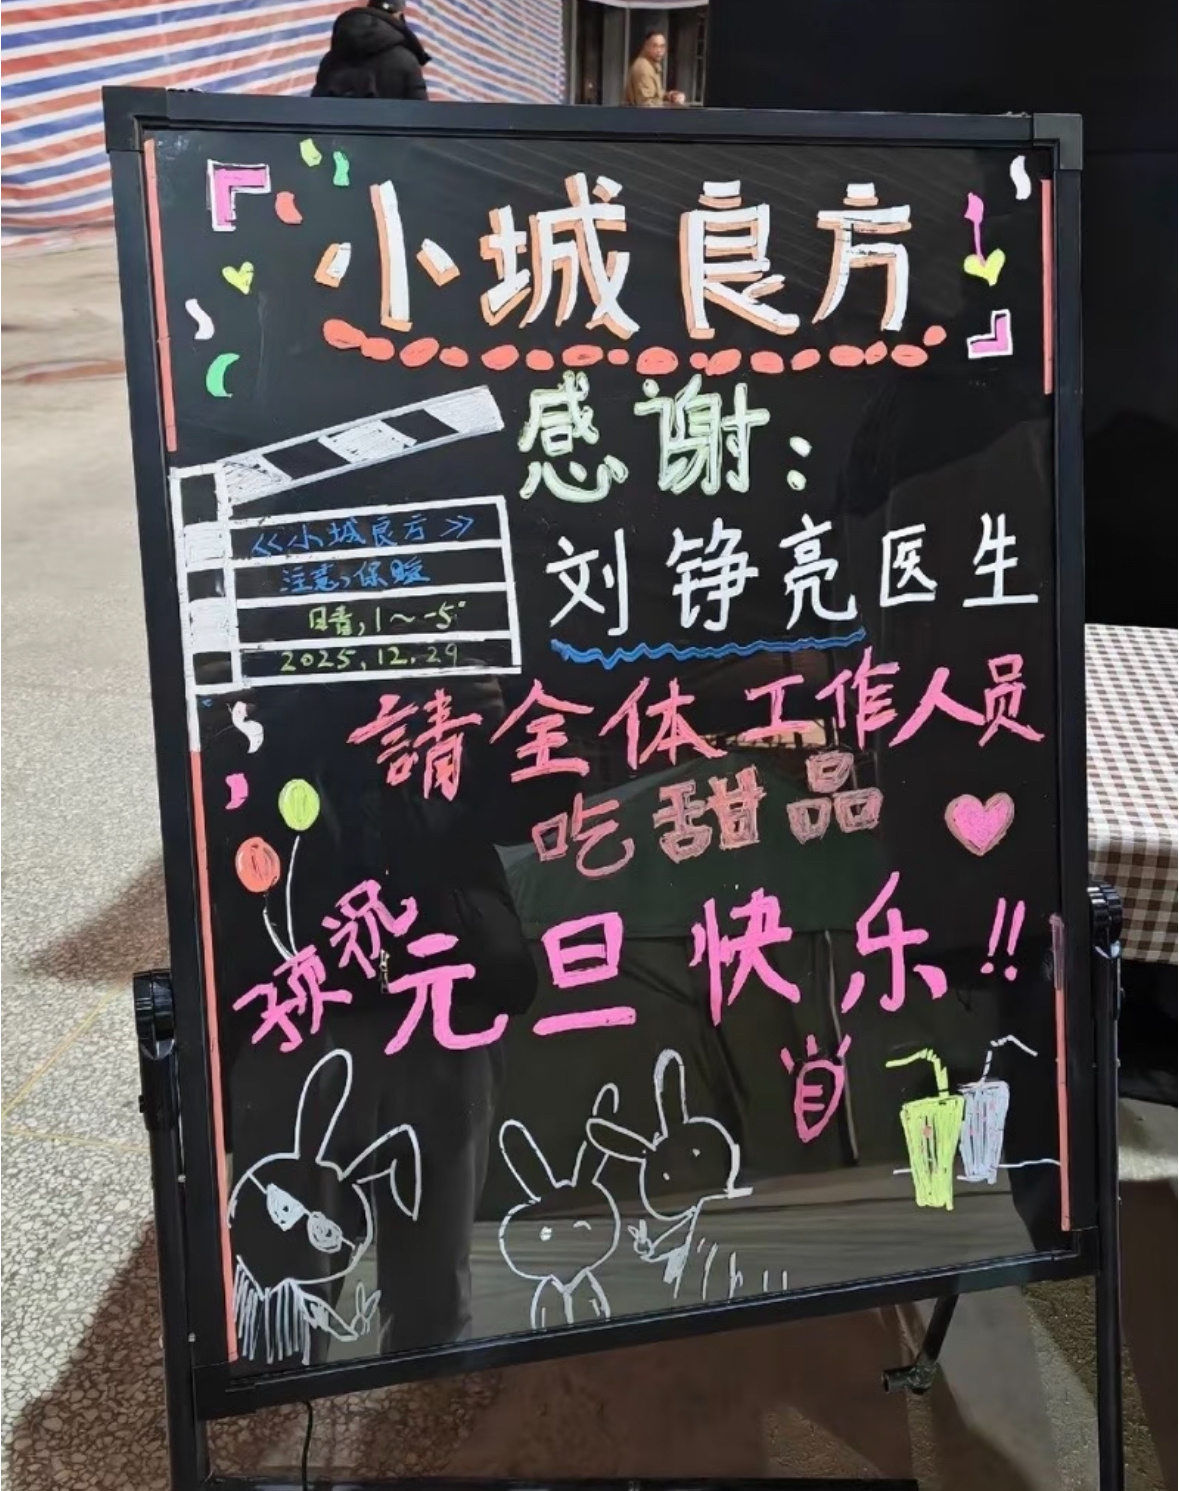 小城良方
感谢:
《小城良方》
注意、保暖
日晴,1～-5°
2025.12.29
刘铮亮医生
請全体工作人员
吃甜品
预祝元旦快乐!!